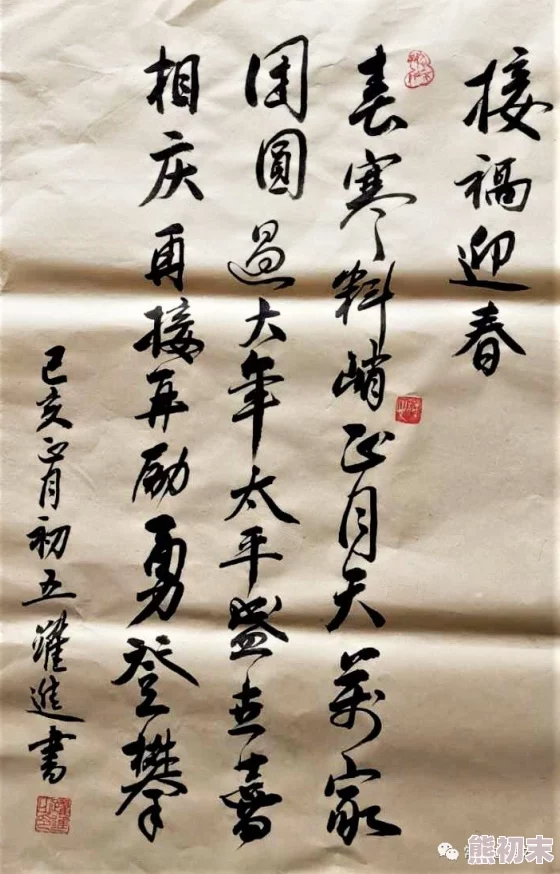 接福迎春
春寒料峭正月天万家
团圆過大年太平盛世喜
相庆再接再励勇登攀
己亥正月初五躍進書
熊初末